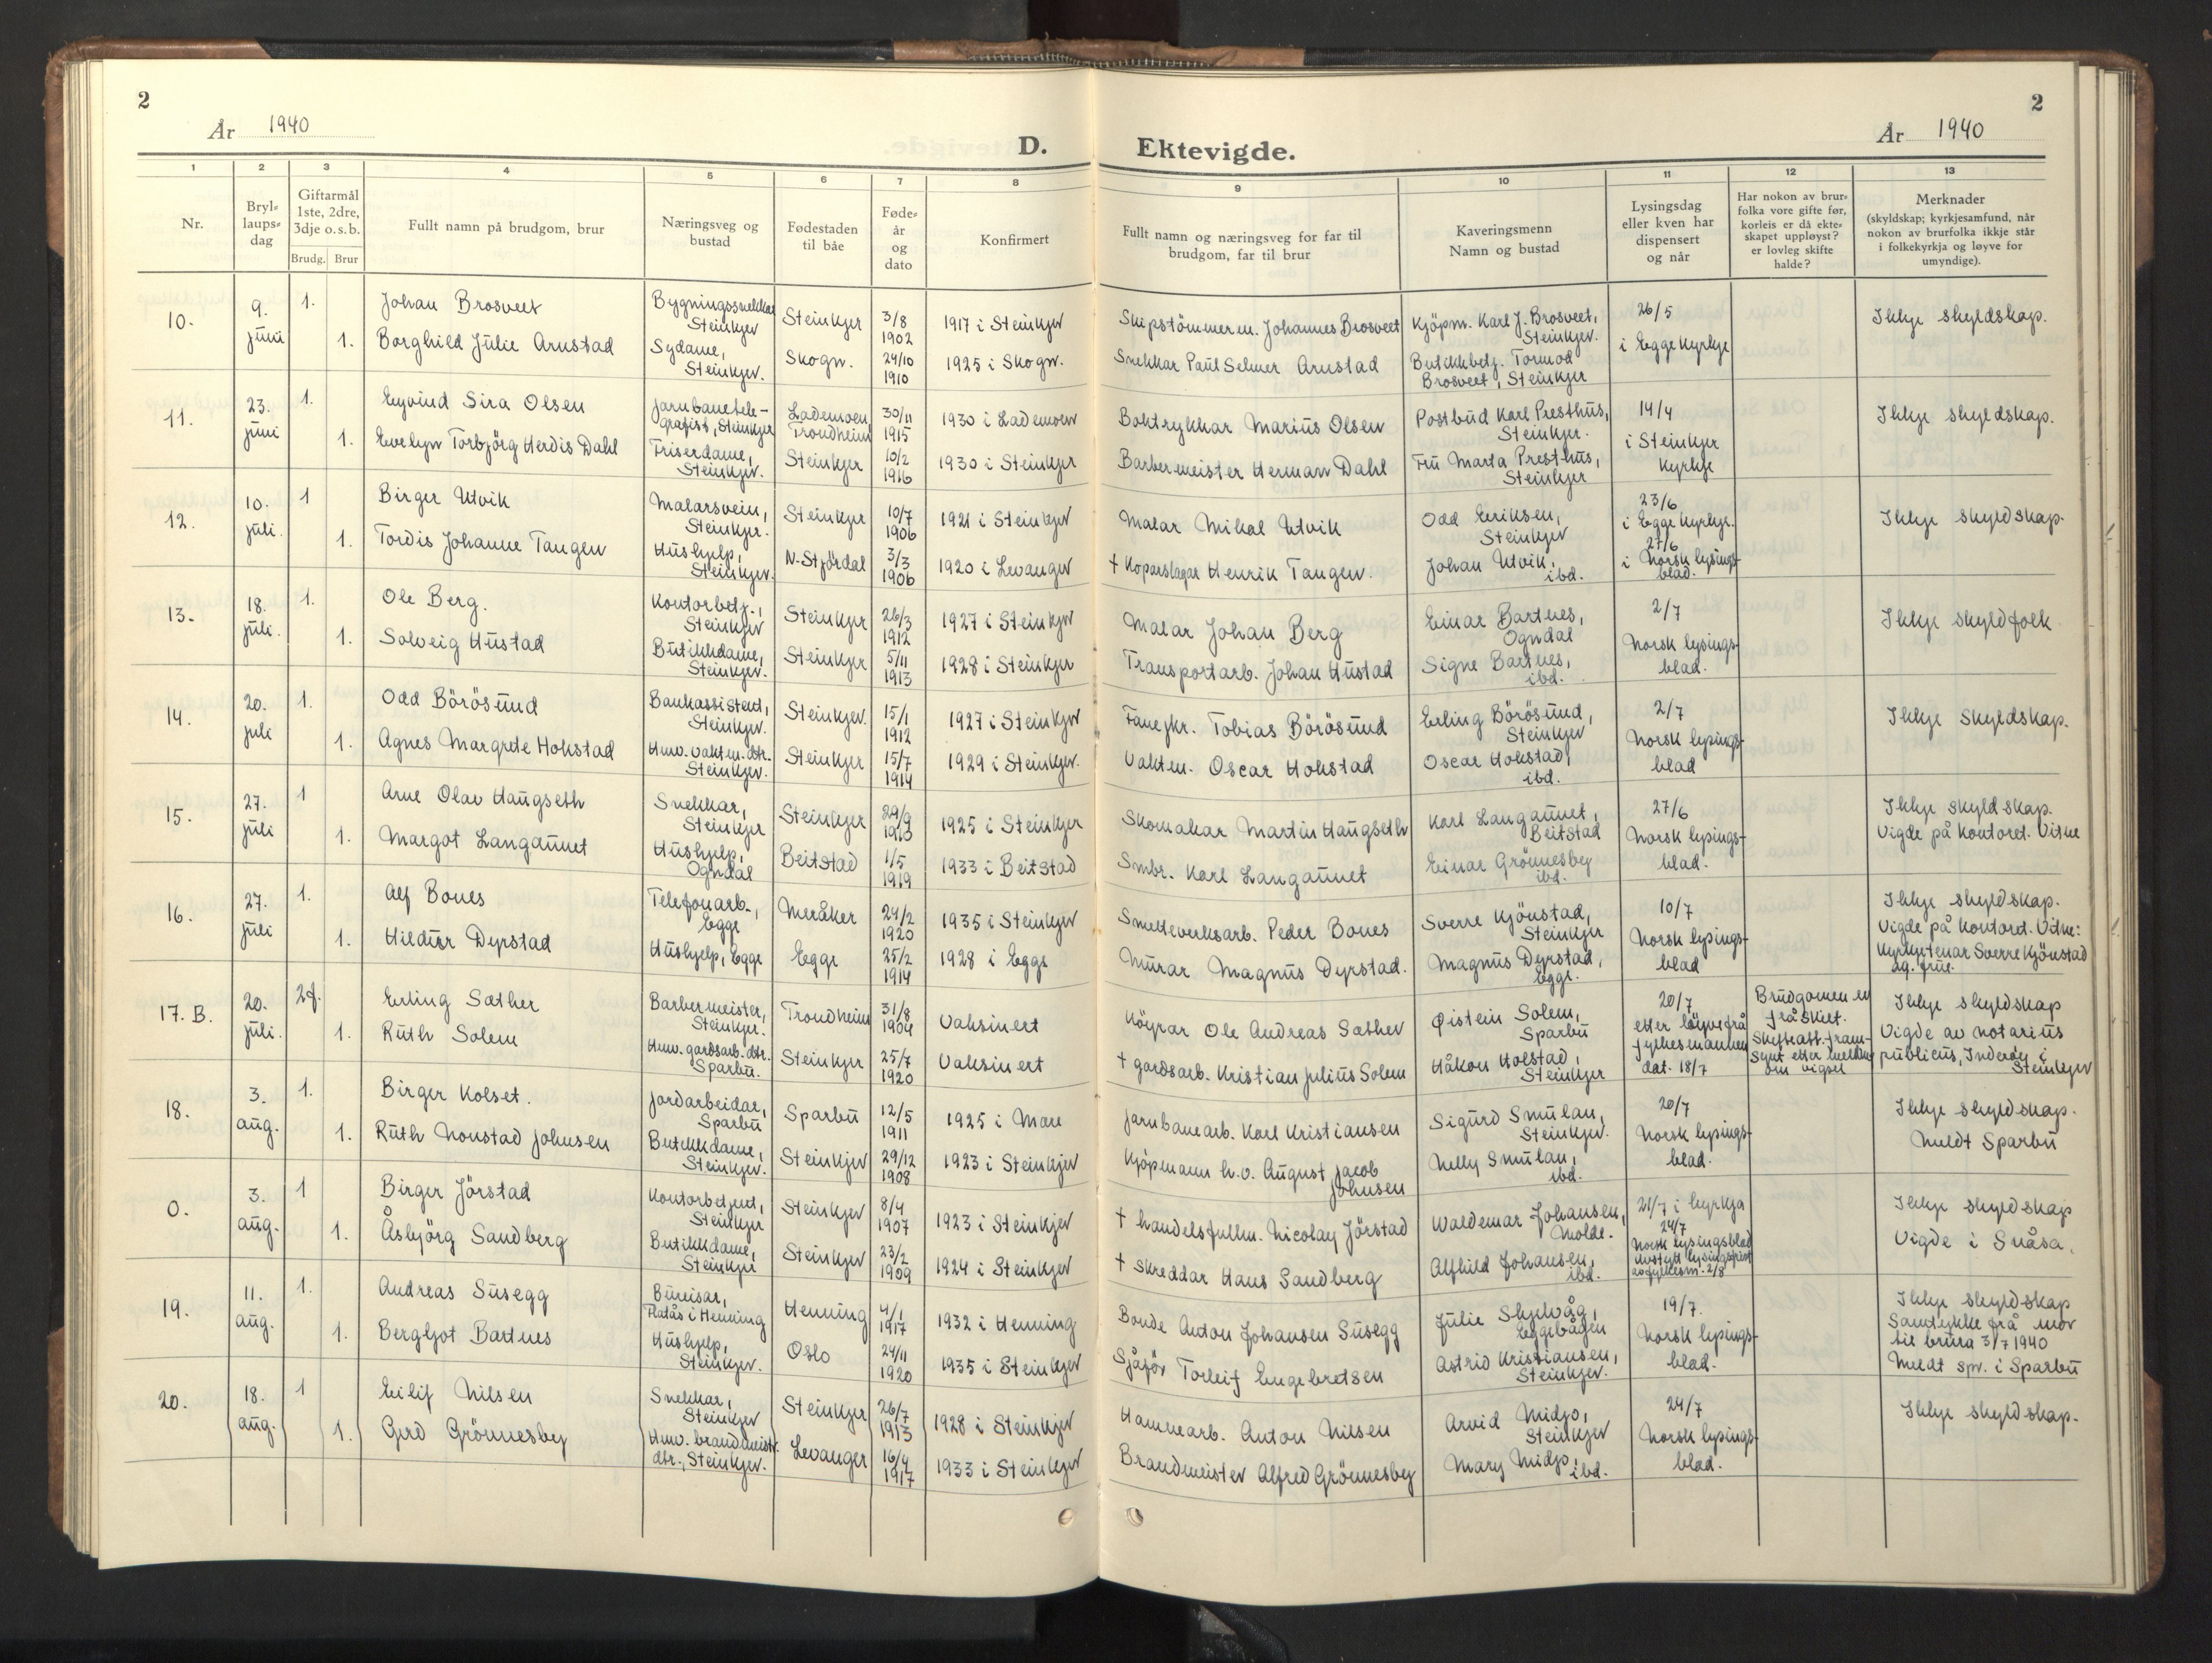 2
År 1940
D.
Ektevigde.
År 1940
2
1 2 3 4 5 6 7 8 9 10 11 12 13
Nr.
Bryl-
laups-
dag
Giftarmål
1ste, 2dre,
3dje o.s.b.
Brudg. Brur
Fullt namn på brudgom, brur
Næringsveg og
bustad
Fødestaden
til båe
Føde-
år
og
dato
Konfirmert
Fullt namn og næringsveg for far til
brudgom, far til brur
Kaveringsmenn
Namn og bustad
Lysingsdag
eller kven har
dispensert
og når
Har nokon av brur-
folka vore gifte før,
korleis er då ekte-
skapet uppløyst?
er lovleg skifte
halde?
Merknader
(skyldskap; kyrkjesamfund, når
nokon av brurfolka ikkje står
i folkekyrkja og løyve for
umyndige).
10.
9.
juni
1.
Johan Brosveet
Bygningssnekkar
Steinkjer
Steinkjer
3/8
1902
1917 i Steinkjer
Skipstömmerm. Johannes Brosveet
Kjöpm. Karl J. Brosveet,
Steinkjer.
26/5
i Egge Kyrkje
Ikkje skyldskap.
1.
Borghild Julie Arnstad
Sydame,
Steinkjer.
Skogn.
24/10
1910
1925 i Skogn.
Snekkar Paul Selmer Arnstad
Butikkbetj. Tormod
Brosveet, Steinkjer
11.
23.
juni
1.
Eyvind Sira Olsen
Jarnbanetele-
grafist, Steinkjer
Lademoen,
Trondheim
30/11
1915
1930 i Lademoen
Boktrykkar Marius Olsen
Postbud Karl Presthus,
Steinkjer.
14/4
i Steinkjer
Kyrkje
Ikkje skyldskap.
1.
Evelyn Torbjörg Herdis Dahl
Friserdame,
Steinkjer.
Steinkjer
10/2
1916
1930 i Steinkjer
Barbermeister Herman Dahl
Fru Marta Presthus,
Steinkjer
12.
10.
juli.
1
Birger Utvik
Malarsvein,
Steinkjer.
Steinkjer
10/7
1906
1921 i Steinkjer
Malar Mikal Utvik
Odd Eriksen,
Steinkjer
23/6
i Egge Kyrkje.
27/6
i Norsk lysings-
blad.
Ikkje skyldskap.
1.
Tordis Johanne Tangen
Hushjelp,
Steinkjer.
N-Stjördal
3/3
1906
1920 i Levanger
+ Koparslagar Henrik Tangen.
Johan Utvik,
ibd.
13.
18.
juli.
1.
Ole Berg.
Kontorbetj.,
Steinkjer
Steinkjer
26/3
1912
1927 i Steinkjer
Malar Johan Berg
Einar Bartnes,
Ogndal
2/7
Norsk lysings-
blad.
Ikkje skyldfolk
1.
Solveig Hustad
Butikkdame,
Steinkjer.
Steinkjer
5/11
1913
1928 i Steinkjer
Transportarb. Johan Hustad
Signe Bartnes,
ibd.
14.
20.
juli
1.
Odd Börösund
Bankassistent,
Steinkjer.
Steinkjer.
15/1
1912
1927 i Steinkjer
Fanejkr. Tobias Börösund
Erling Börösund,
Steinkjer
2/7
Norsk lysings-
blad
Ikkje Skyldskap.
1.
Agnes Margrete Hokstad
Hmv. vaktm. dtr.
Steinkjer.
Steinkjer
15/7
1914
1929 i Steinkjer.
Vaktm. Oscar Hokstad
Oscar Hokstad,
ibd.
15.
27.
juli
1
Arne Olav Haugseth
Snekkar,
Steinkjer
Steinkjer
29/9
1913
1925 i Steinkjer
Skomakar Martin Haugseth
Karl Langaunet,
Beitstad
27/6
Norsk lysings-
blad.
Ikkje skyldskap.
Vigde på kontoret. Vitne
1.
Margot Langaunet
Hushjelp,
Ogndal
Beitstad
1/5
1919
1933 i Beitstad
Smbr. Karl Langaunet
Einar Grönnesby
ibd.
16.
27.
juli
1.
Alf Bones
Telefonarb.,
Egge
Meråker
24/2
1920
1935 i Steinkjer
Smelteverksarb. Peder Bones
Sverre Kjönstad,
Steinkjer
10/7
Norsk lysings-
blad
Ikkje skyldskap.
Vigde på kontoret. Vitne:
Kyrkjetenar Sverre Kjönstad
og frue.
1.
Hildur Dyrstad
Hushjelp, Egge
Egge
25/2
1914
1928 i Egge
Murar Magnus Dyrstad.
Magnus Dyrstad,
Egge.
17. B.
20.
juli.
2f.
Erling Sæther
Barbermeister,
Steinkjer.
Trondheim
31/8
1904
Vaksinert
Köyrar Ole Andreas Sæther
Øistein Solem,
Sparbu
20/7
etter löyve frå
fylkesmannen
dat. 18/7
Brudgomen er
fråskilt.
Skifteatt. fram-
synt etter melding
om vigsel
Ikkje skyldskap
Vigde av notarius
publicus, Inderöy i
Steinkjer
1.
Ruth Solem
Hmv. gardsarb. dtr.
Sparbu.
Steinkjer
25/7
1920
Vaksinert
+ gardsarb. Kristian Julius Solem
Håkon Holstad,
Steinkjer
18.
3.
aug.
1.
Birger Kolset.
Jordarbeidar,
Sparbu
Sparbu
12/5
1911
1925 i Mære
Jarnbanearb. Karl Kristiansen
Sigurd Smulan,
Steinkjer.
20/7
Norsk lysings-
blad.
Ikkje skyldskap.
Meldt Sparbu
1.
Ruth Nonstad Johnsen
Butikkdame,
Steinkjer.
Steinkjer
29/12
1908
1923 i Steinkjer
Kjöpmann h.v. August Jacob
Johnsen
Nelly Smulan,
ibd.
0.
3.
aug.
1
Birger Jörstad
Kontorbetjent,
Steinkjer
Steinkjer
8/4
1907
1923 i Steinkjer
+ handelsfullm. Nicolay Jörstad
Waldemar Johansen,
Molde.
21/7 i kyrkja
24/7
Norsk lysingsblad
avstytt lysingsfrist
av fylkesm. 2/8
Ikkje skyldskap
Vigde i Snåsa.
1.
Åsbjörg Sandberg
Butikkdame,
Steinkjer
Steinkjer
23/2
1909
1924 i Steinkjer
+ Skreddar Hans Sandberg
Alfhild Johansen,
ibd.
19.
11.
aug.
1.
Andreas Susegg
Bureisar,
Flatås i Henning
Henning
4/1
1917
1932 i Henning
Bonde Anton Johansen Susegg
Julie Skjelvåg,
Eggebågen
19/7.
Norsk lysings-
blad.
Ikkje skyldskap
Samtykke frå mor
til brura 3/7 1940
Meldt spr. i Sparbu
1.
Bergljot Bartnes
Hushjelp,
Steinkjer.
Oslo
24/11
1920
1935 i Steinkjer
Sjåför Torleif Engebretsen
Astrid Kristiansen,
Steinkjer.
20.
18.
aug.
1
Eilif Nilsen
Snekkar,
Steinkjer
Steinkjer
26/7
1913
1928 i Steinkjer
Hamnearb. Anton Nilsen
Arvid Midjo,
Steinkjer
24/7
Norsk lysings-
blad.
Ikkje skyldskap.
1.
Gerd Grönnesby
Hmv. brandmeist.
dtr., Steinkjer.
Levanger
16/4
1917
1933 i Steinkjer
Brandmeister Alfred Grönnesby
Mary Midjo,
ibd.